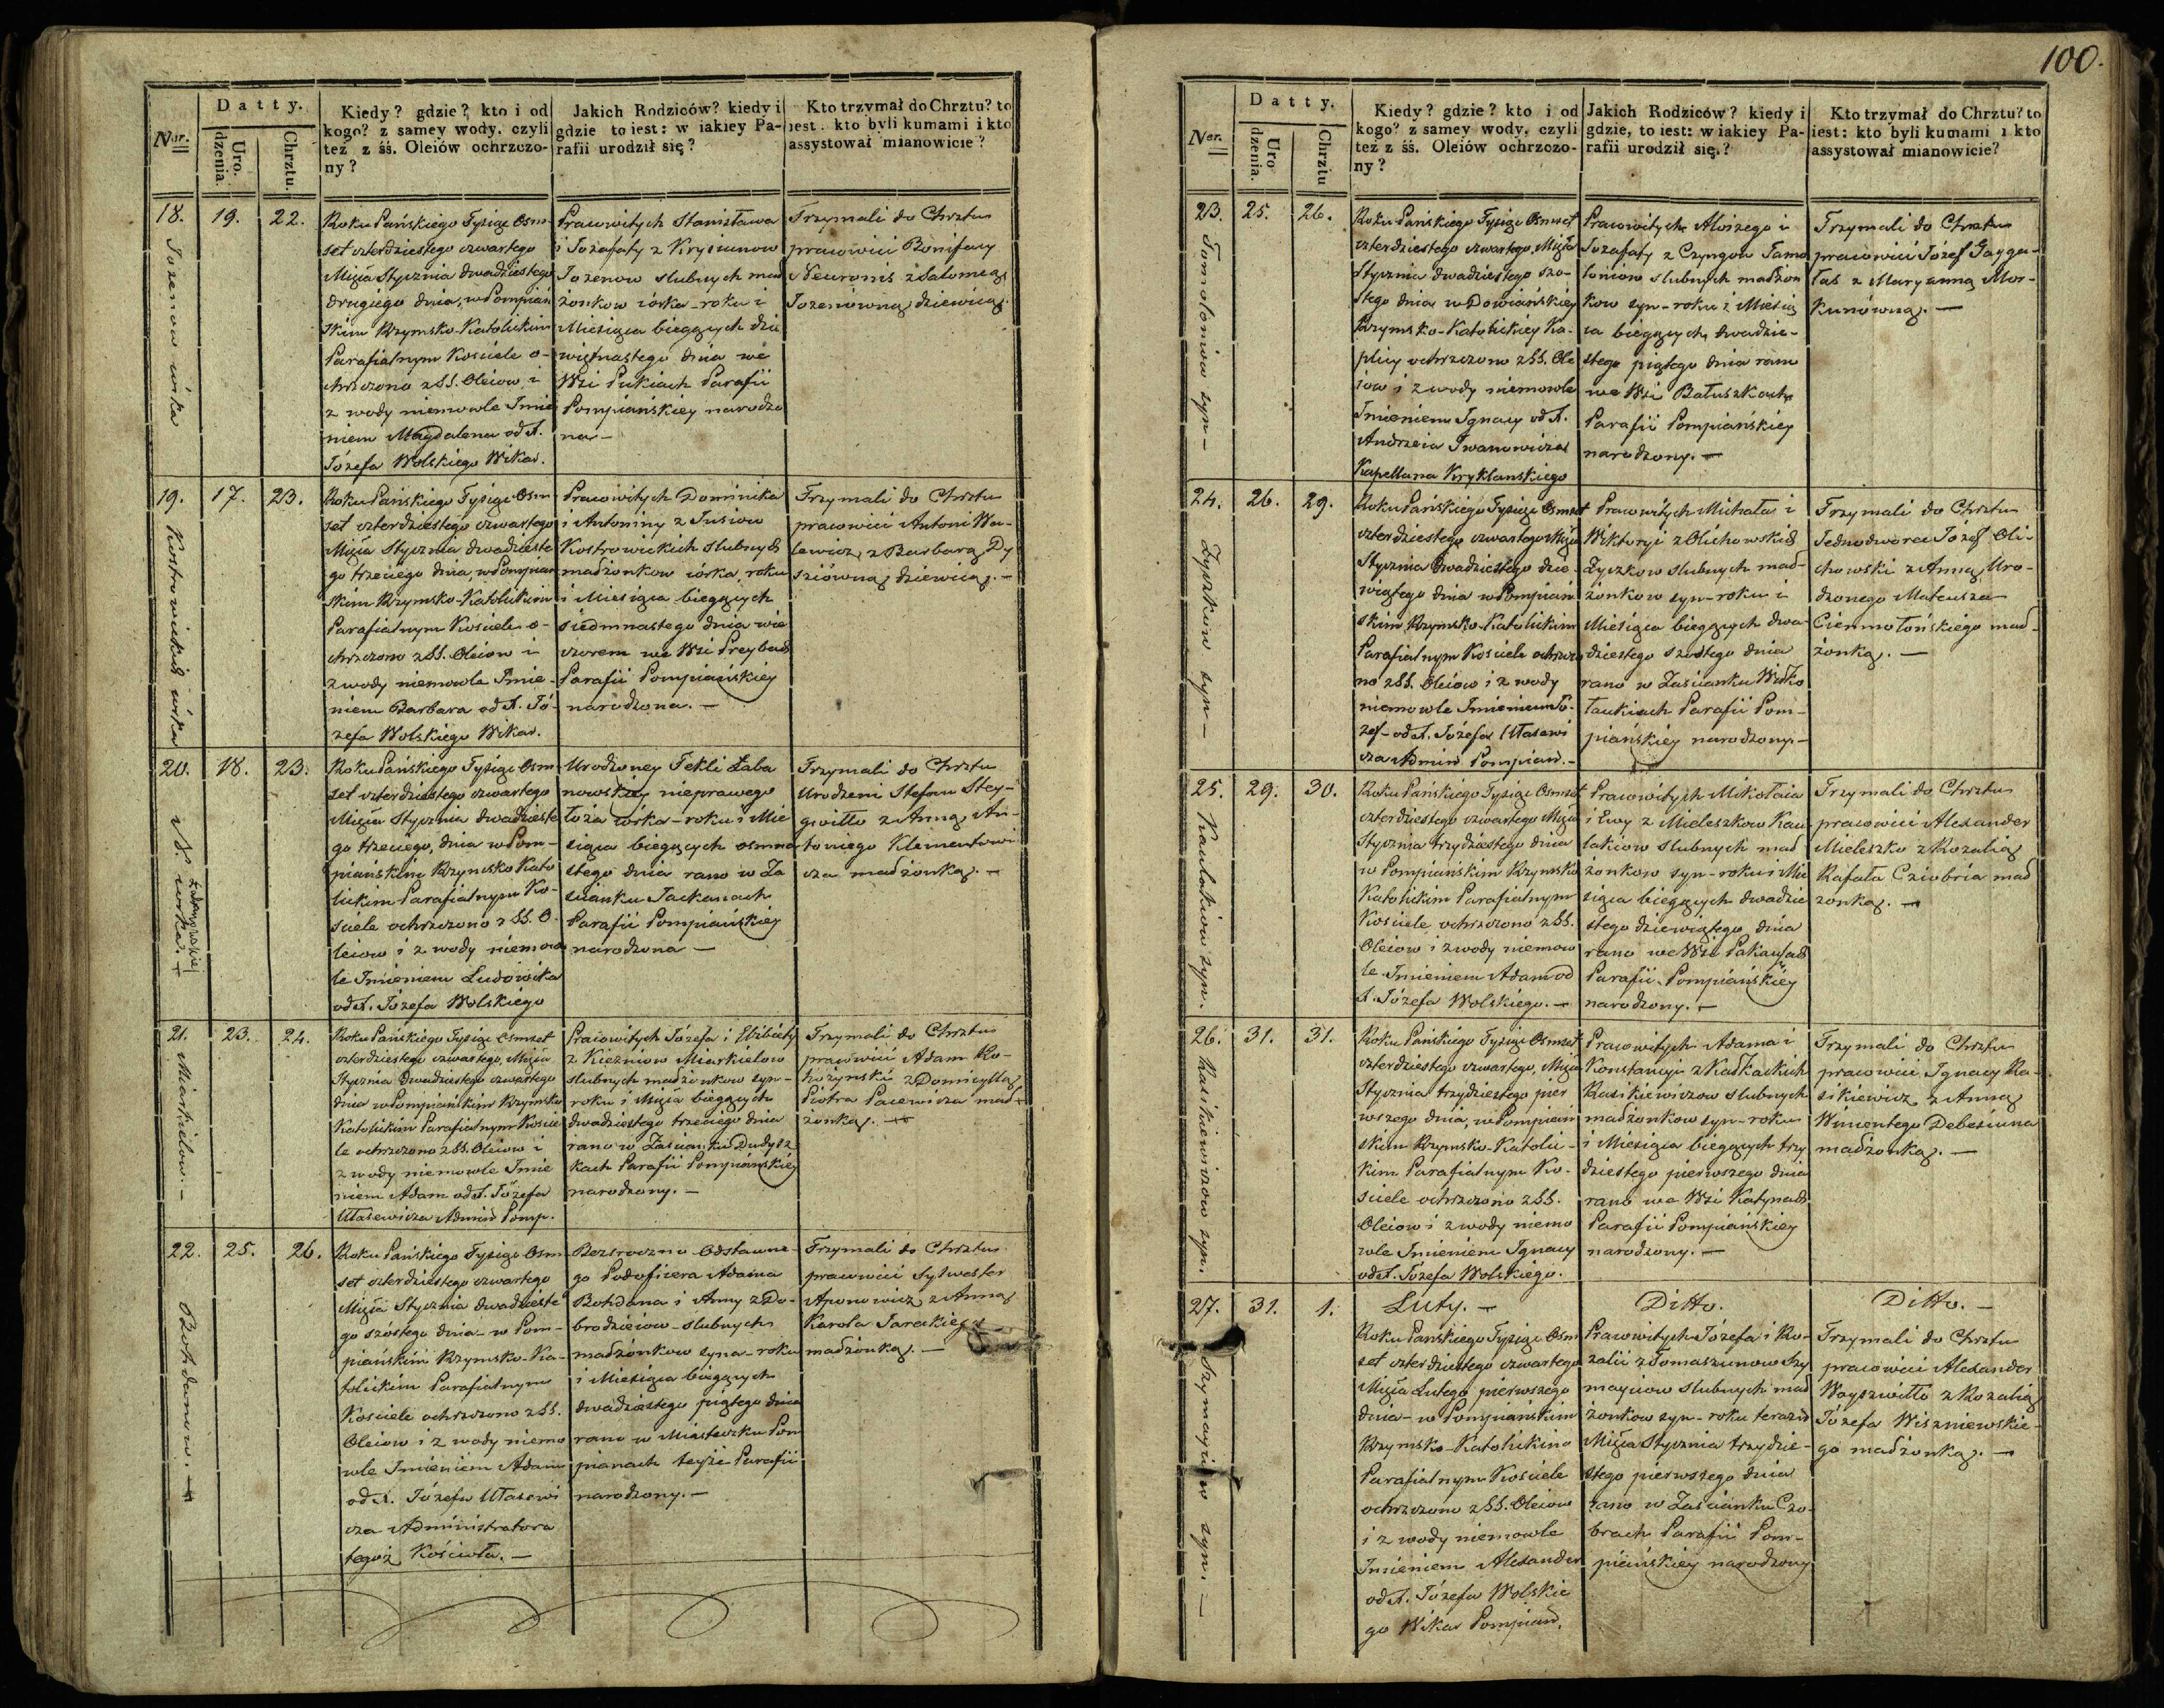 100.
Datty.
Nȩr.
Uro.
dzenia.
Chrztu.
Kiedy? gdzie? kto i od
kogo? z samey wody, czyli
też z śś. Oleiów ochrzczo-
ny?
Jakich Rodziców? kiedy i
gdzie to iest: w iakiey Pa-
rafii urodził się?
Kto trzymał do Chrztu? to
iest: kto byli kumami i kto
assystował mianowicie?
18.
19.
22.
Roku Pańskiego Tysiąc Osm-
set czterdziestego czwartego
Mca Stycznia dwudziestego
drugiego dnia, w Pompiań
skim Rzymsko-Katolickim
Parafialnym Kosciele o-
chrzczono z SS. Oleiow i
z wody niemowle Imie
niem Magdalena od X.
Józefa Wolskiego Wikar.
Pracowitych Stanisława
i Jozafaty z Krysiunow
Jozenow slubnych mał
zonkow córka - roku i
Miesiąca bieżących dzie
więtnastego dnia we
Wsi Pukiach Parafii
Pompiańskiey narodzo
na -
Trzymali do Chrztu
pracowici Bonifacy
Neuronis z Salomeą
Jozenówną dziewicą.
19.
17.
23.
Kostrowickich córka
Roku Pańskiego Tysiąc Osm
set czterdziestego czwartego
Mca Stycznia dwudzieste
go trzeciego dnia, w Pompian
skim Rzymsko-Katolickim
Parafialnym Kosciele o-
chrzczono z SS. Oleiow i
z wody niemowle Imie-
niem Barbara od X. Jó-
zefa Wolskiego Wikar.
Pracowitych Dominika
i Antoniny z Jusiow
Kostrowickich slubnych
małżonkow córka, roku
i Miesiąca bieżących
siedmnastego dnia wie
czorem we Wsi Preybach
Parafii Pompiańskiey
narodzona. -
Trzymali do Chrztu
pracowici Antoni Wa-
lewicz z Barbarą Dy
sziówną dziewicą. -
20.
18.
23.
N. córka. -
Roku Pańskiego Tysiąc Osm
set czterdziestego czwartego
Mca Stycznia dwudzieste
go trzeciego, dnia w Pom-
piańskim Rzymsko Kato
lickim Parafialnym Ko-
sciele ochrzczono z SS. O-
leiow i z wody niemow
le Imieniem Ludowika
od X. Józefa Wolskiego
Urodzoney Tekli Łaba
nowskiey nieprawego
łoża córka - roku i Mie
siąca bieżących osmna
stego dnia rano w Za
scianku Jackanach
Parafii Pompiańskiey
narodzona -
Trzymali do Chrztu
Urodzeni Stefan Stey-
gwiłło z Anną An-
toniego Klimentowi
cza małżonką. -
21.
23.
24.
Miarkielow. -
Roku Pańskiego Tysiąc Osmset
czterdziestego czwartego, Mca
Stycznia dwudziestego czwartego
dnia w Pompiańskim Rzymsko
Katolickim Parafialnym Koscie
le ochrzczono z SS. Oleiow i
z wody niemowle Imie
niem Adam od X. Józefa
Utasewicza Admin Pomp.
Pracowitych Józefa i Elżbiety
z Kieżniow Miarkielow
slubnych małżonkow syn -
roku i Mca bieżących
dwudziestego trzeciego dnia
rano w Zascianku Dudysz
kach Parafii Pompiańskiey
narodzony. -
Trzymali do Chrztu
pracowici Adam Ro-
hożynski z Domicyllą
Piotra Pacewicza mał-
żonką. -
22.
25.
26.
Bohdanow. -
Roku Pańskiego Tysiąc Osm
set czterdziestego czwartego
Mca Stycznia dwudzieste
go szóstego dnia - w Pom-
piańskim Rzymsko-Ka-
tolickim Parafialnym
Kosciele ochrzczono z SS.
Oleiow i z wody niemo
wle Imieniem Adam
od X. Józefa Utasewi
cza Administratora
tegoż Kościoła. -
Bezroczno Odstawne-
go Podoficera Adama
Bohdana i Anny z Do-
brodziejow - slubnych
małżonkow syna - roku
i Miesiąca bieżących
dwudziestego piątego dnia
rano w Miasteczku Pom
pianach teyże Parafii
narodzony. -
Trzymali do Chrztu
pracowici Sylwester
Aponowicz z Anną
Karola Sarackiego
małżonką. -
Datty.
Ner.
Uro
dzenia.
Chrztu
Kiedy? gdzie? kto i od
kogo? z samey wody, czyli
też z śś. Oleiów ochrzczo-
ny?
Jakich Rodziców? kiedy i
gdzie, to iest: w iakiey Pa-
rafii urodził się.?
Kto trzymał do Chrztu? to
iest: kto byli kumami i kto
assystował mianowicie?
23.
25.
26.
Tomołoniow syn -
Roku Pańskiego Tysiąc Osmset
czterdziestego czwartego, Mca
Stycznia dwudziestego szo-
stego dnia w Dowiańskiey
Rzymsko-Katolickiey Ka-
plicy ochrzczono z SS. Ole
iow i z wody niemowle
Imieniem Ignacy od X.
Andrzeia Iwanowicza
Kapellana Kryklanskiego
Pracowitych Aloizego i
Jozafaty z Czyngow Tamo
łoniow slubnych małżon
kow syn - roku i Miesią
ca bieżących dwudzie-
stego piątego dnia rano
we Wsi Bałuszkach
Parafii Pompiańskiey
narodzony. -
Trzymali do Chrztu
pracowici Józef Gayga-
łas z Maryanną Mor-
kunówną. -
24.
26.
29.
Życzkow syn -
Roku Pańskiego Tysiąc Osmset
czterdziestego czwartego Mca
Stycznia dwudziestego dzie-
wiątego dnia w Pompiań
skim Rzymsko-Katolickim
Parafialnym Kosciele ochrzczo
no z SS. Oleiow i z wody
niemowle Imieniem Jó-
zef - od X. Józefa Utasewi
cza Admin Pompian. -
Pracowitych Michała i
Wiktoryi z Olichowskich
Życzkow slubnych mał-
żonkow syn - roku i
Miesiąca bieżących dwu
dziestego szostego dnia
rano w Zascianku Wiżko
łaukiach Parafii Pom-
piańskiey narodzony -
Trzymali do Chrztu
Jednodworca Józef Oli-
chowski z Anną Uro-
dzonego Mateusza
Ciemnołońskiego mał-
żonką. -
25.
29.
30.
Kawlakiow syn.
Roku Pańskiego Tysiąc Osmset
czterdziestego czwartego Mca
Stycznia trzydziestego dnia
w Pompiańskim Rzymsko
Katolickim Parafialnym
Kosciele ochrzczono z SS.
Oleiow i z wody niemow
le Imieniem Adam od
X. Józefa Wolskiego. -
Pracowitych Mikołaia
i Ewy z Mieleszkow Kaw
lakiow slubnych mał
żonkow syn - roku i Mie
siąca bieżących dwudzie
stego dziewiątego dnia
rano we Wsi Pakausach
Parafii Pompiańskiey
narodzony. -
Trzymali do Chrztu
pracowici Alexander
Mieleszko z Rozalią
Rafała Cziobria mał
zonką. -
26.
31.
31.
Rasikiewiczow syn.
Roku Pańskiego Tysiąc Osmset
czterdziestego czwartego, Mca
Stycznia trzydziestego pier
wszego dnia, w Pompian
skim Rzymsko-Katolic-
kim Parafialnym Ko-
sciele ochrzczono z SS.
Oleiow i z wody niemo
wle Imieniem Ignacy
od X. Józefa Wolskiego.
Pracowitych Adama i
Konstancyi z Kadkackich
Rasikiewiczow slubnych
małżonkow syn - roku
i Miesiąca bieżących trzy
dziestego pierwszego dnia
rano we Wsi Katynach
Parafii Pompiańskiey
narodzony. -
Trzymali do Chrztu
pracowici, Ignacy Ra-
sikiewicz z Anną
Wincentego Debesiuna
małżonką. -
27.
31.
1.
Szymayciow syn. -
Luty. -
Roku Pańskiego Tysiąc Osm
set czterdziestego czwartego
Mca Lutego pierwszego
dnia - w Pompiańskim
Rzymsko-Katolickim
Parafialnym Kosciele
ochrzczono z SS. Oleiow
i z wody niemowle
Imieniem Alexander
od X. Józefa Wolskie
go Wikar Pompian.
Ditto.
Pracowitych Józefa i Ro-
zalii z Tomaszunow Szy
mayciow slubnych mał
żonkow syn - roku teraz
Mca Stycznia trzydzie-
stego pierwszego dnia
rano w Zascianku Czo-
brach Parafii Pom-
piańskiey narodzony
Ditto. -
Trzymali do Chrztu
pracowici Alexander
Woyszwiłło z Rozalią
Józefa Wiszniewskie-
go małżonką. -